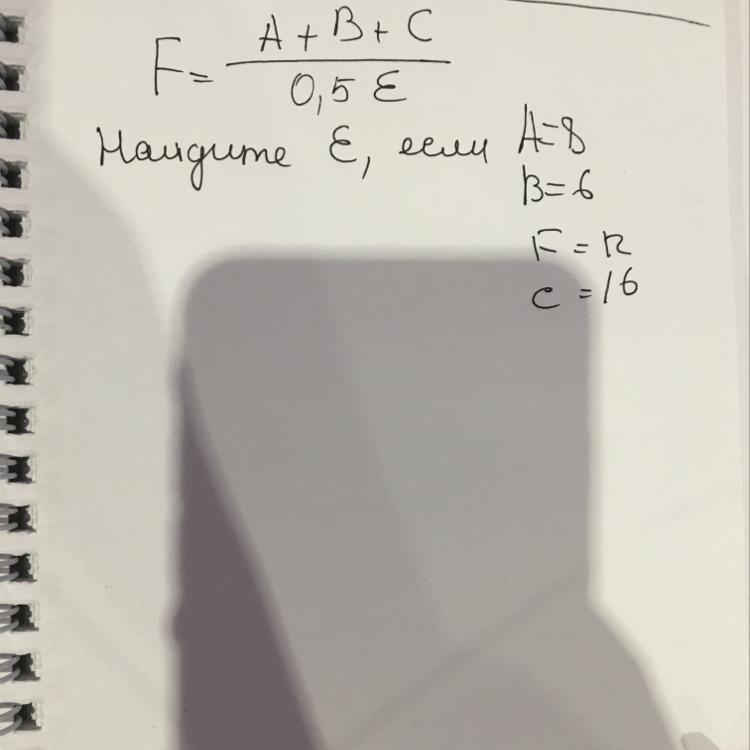 F = A + B + C / 0,5 Ɛ
Найдите Ɛ, если A=8
B=6
F=12
C=16